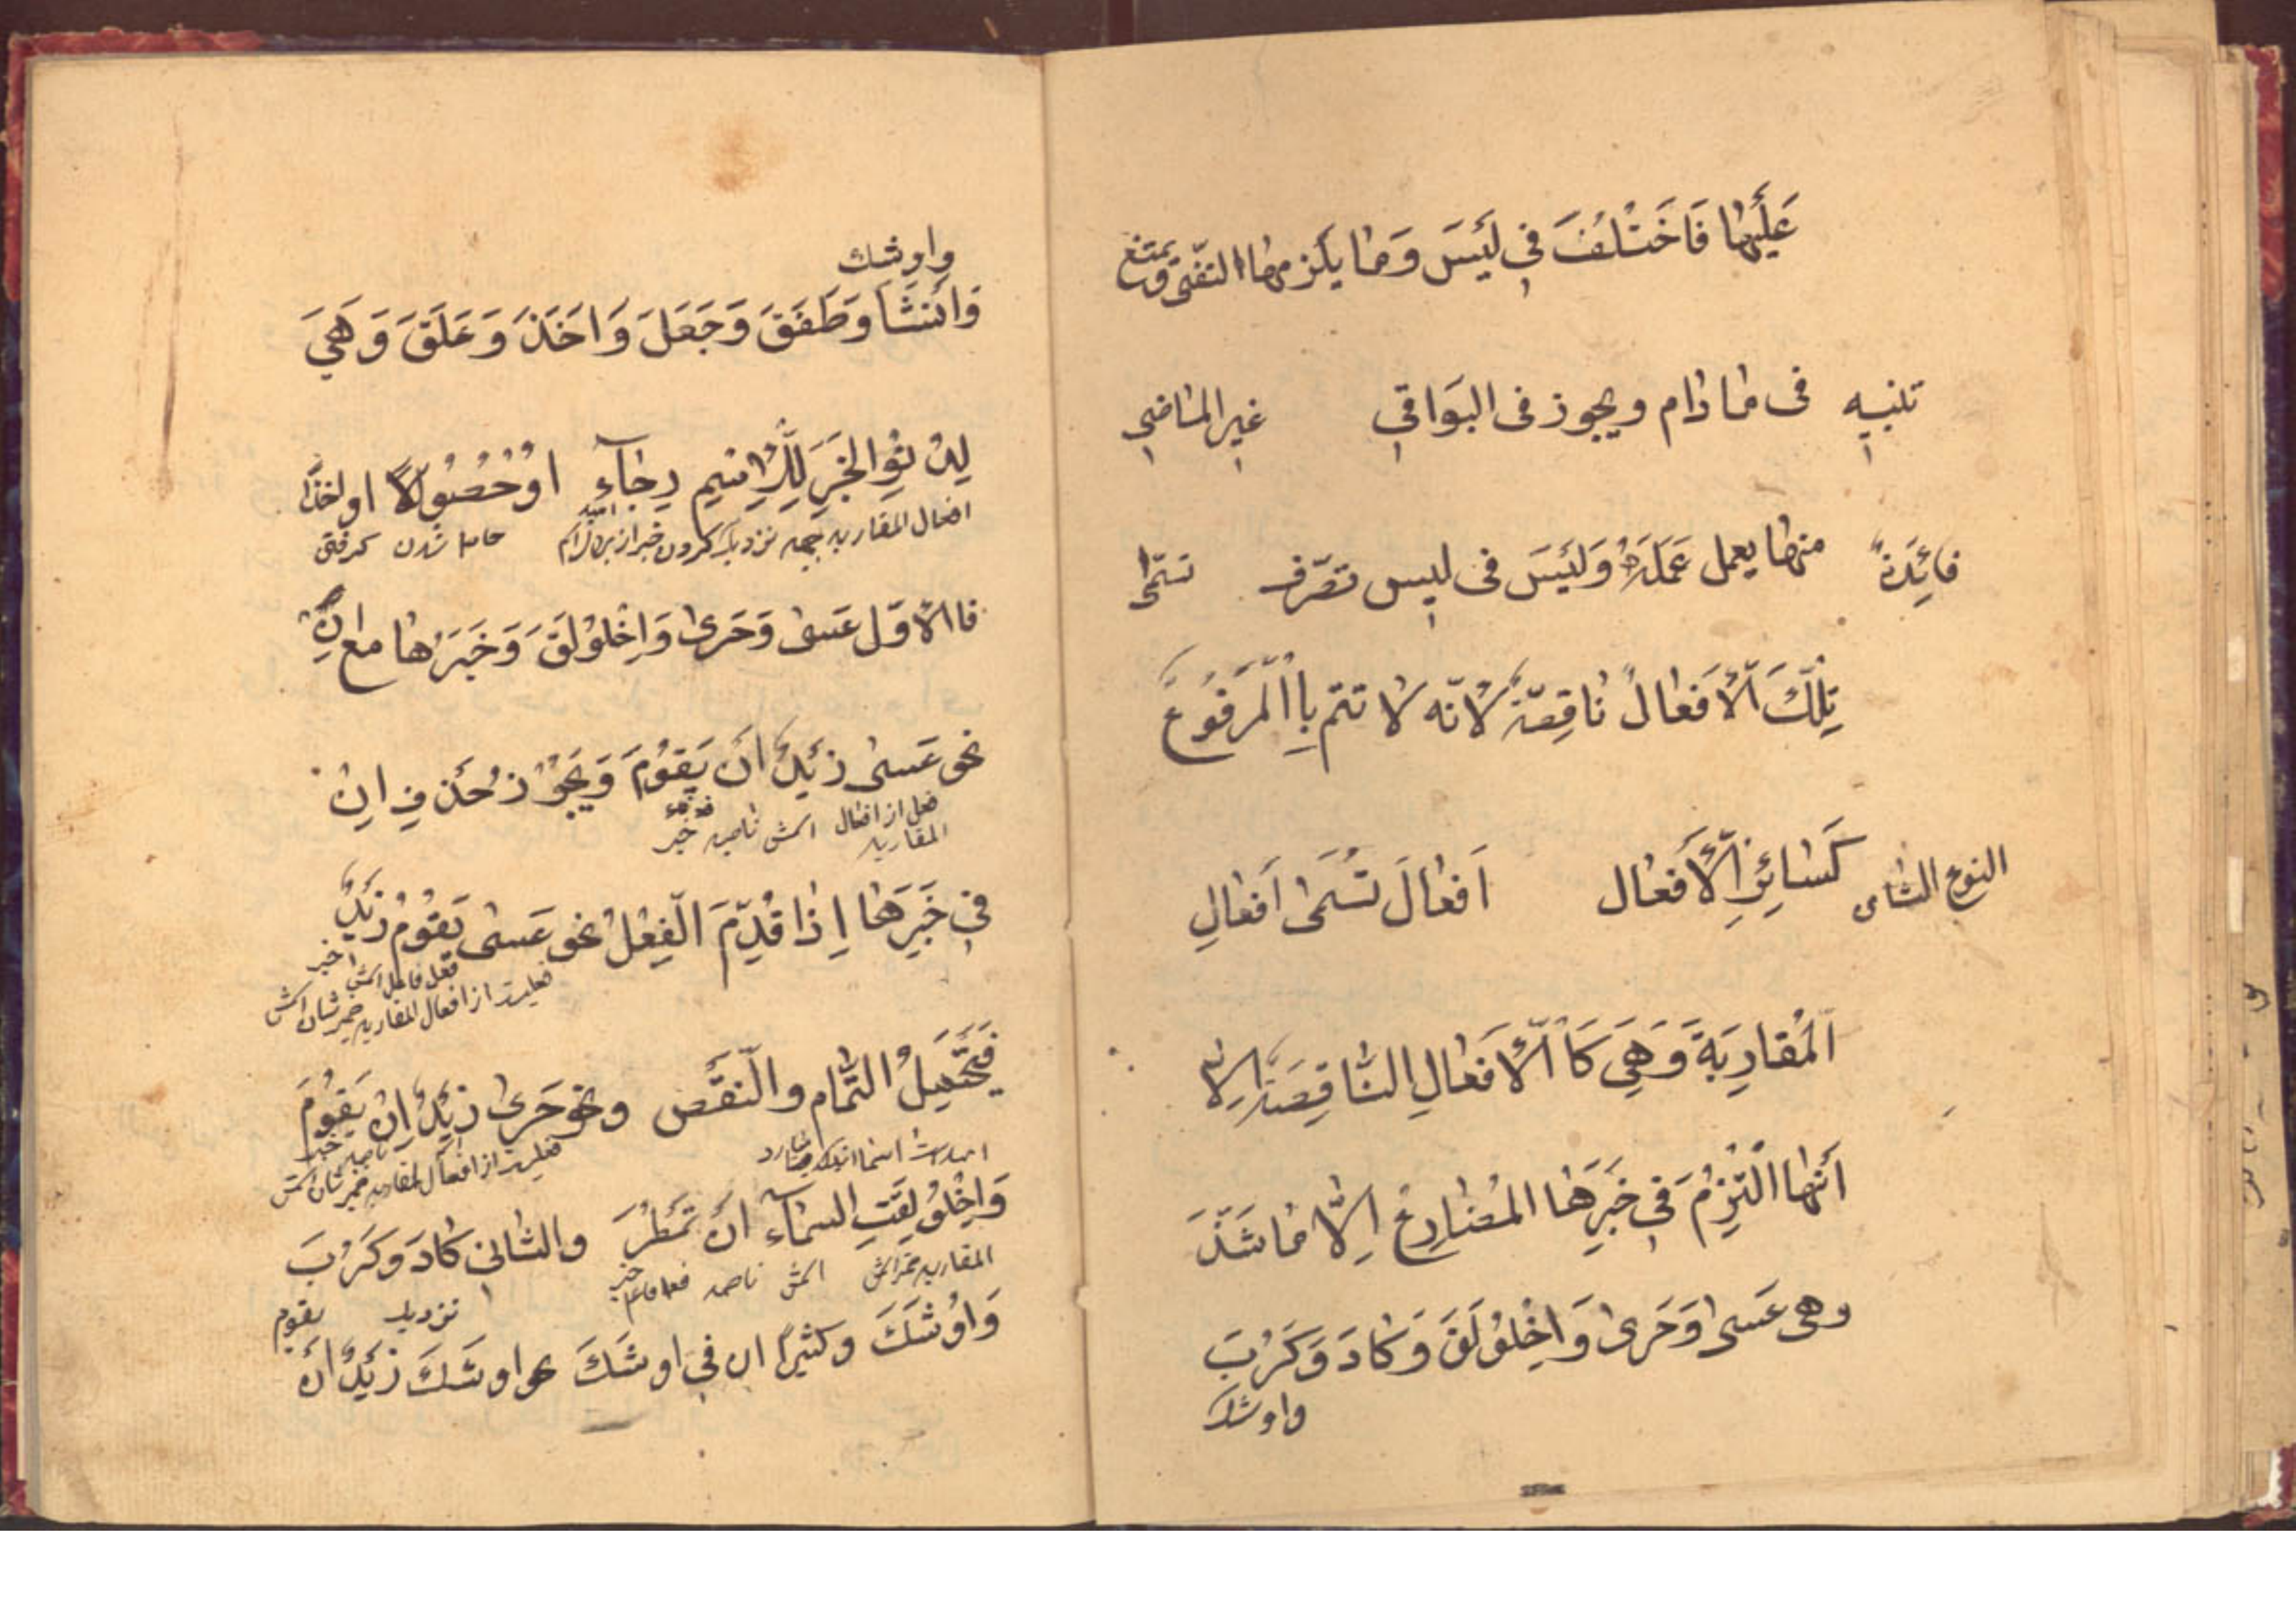 عَلَيْهَا فَاخْتُلِفَ فِي لَيْسَ وَمَا يَلْزَمُهَا النّفى ويمتنع
تنبيه فى مادام ويجوز فى البَوَاقِي غير الماضِي
فائِدَة منها يعمل عَمَلَهُ وَلَيْسَ فى ليس تصرّف تسمّى
تِلْكَ الْأَفعالُ نَاقِصَةٌ لانّه لا تتم بِالْمَرْفُوعِ
النوع الثانى كَسَائِرِ الْأَفعال اَفعالَ تُسَمّى اَفعالِ
اَلْمُقارِبَةِ وَهِيَ كَاالْأَفعالِ النَّاقِصَةِ اِلّا
أَنَّهَا الْتُزِمَ فِي خَبَرِهَا المُضَارِعُ اِلَّا مَا شَذَّ
وهى عَسى وَحَرى وَاخْلَوْلَقَ وَكادَ وَكَرُبَ
واوشك
واوشك
وَانْشَا وَطَفَقَ وَجَعَلَ وَاخَذَ وَعَلَقَ وَهِيَ
لِدُنُوِّ الخَبَرِ لِلْاِسْمِ رِجَآءٍ اَوْ حُصُولًا او اخذًا
افعال المقاربه نزديك كردن خبر از براى اسم اميد حاصل شدن كرفتن
فاالاوّل عَسى وَحَرى وَاخْلَوْلَقَ وَخَبَرُها مع اَنْ
نحو عَسى زَيْدٌ اَنْ يَقُوْمَ وَيَجُوْزُ حُذِفِ ان
فعل از افعال المقاربه اسمش ناصبه خبر
فِي خَبَرِهَا اِذَا قُدِّمَ الْفِعْلُ نحو عَسى يَقُوْمُ زَيْدٌ
فعل فاعل اسمش خبر
فعليست از افعال المقاربه ضمير شان اسمش
فَيَحْتَمِلُ التَّمام والنّقص ونحو حَرى زَيْدٌ اَنْ يَقُوْمَ
فعليست از افعال المقاربه ضمير شان اسمش ناصبه خبر
وَاخْلَوْلَقَتِ السمآء انْ تَمْطُرَ والثانى كَادَ وَكَرُبَ
المقاربه اسمش ناصبه خبر
نزديك يقوم
وَاوْشَكَ وكثيرًا ان فِي اوشَكَ نحو اوشَكَ زَيْدٌ اَنْ